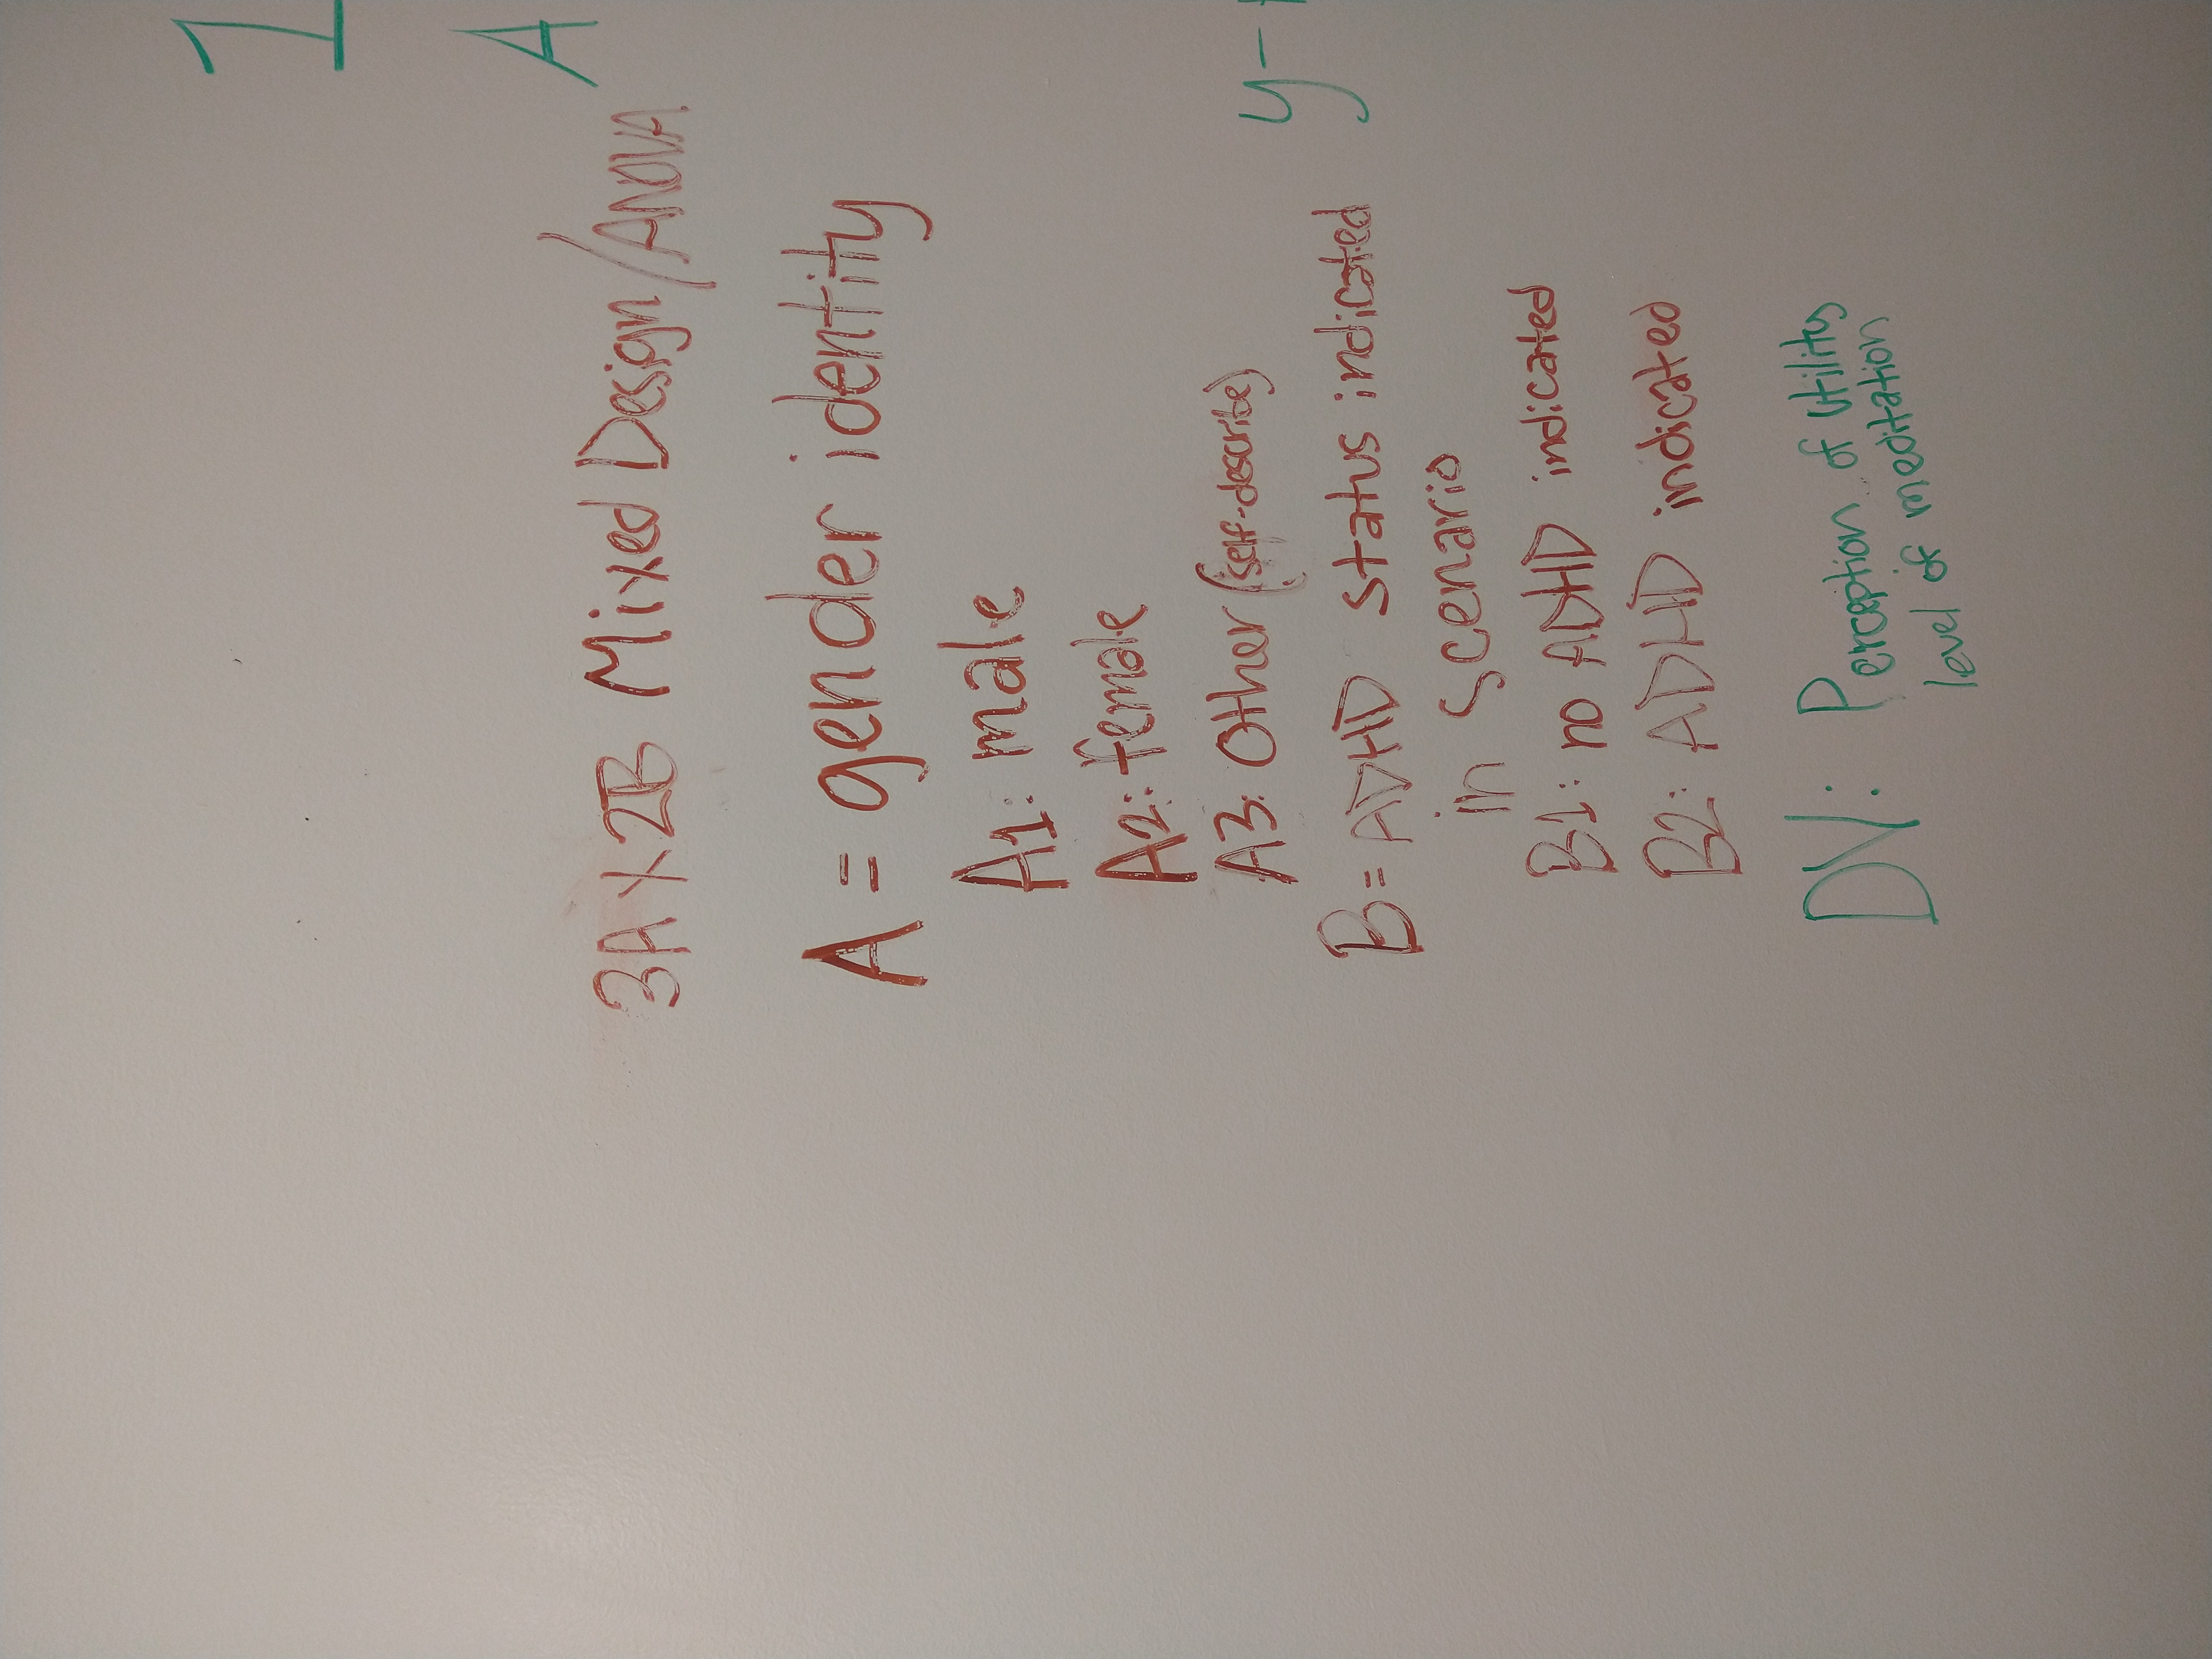 3A x 2B Mixed Design/ANOVA
A = gender identity
A1: male
A2: female
A3: Other (self-describe)
B = ADHD status indicated
in scenario
B1: no ADHD indicated
B2: ADHD indicated
DV: Perception of utility
level of meditation
A
y-